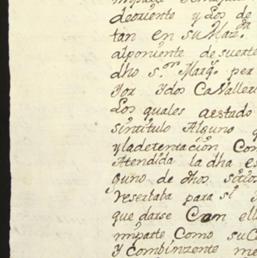 de oriente y Los de
tan en su Mar.
al poniente de suerte
dho s.or Marq.s per
Yor Ydos Cavalleri
Los quales aestado
sintitulo Alguno q
y la detentacion Con
Atendida la dha es
guno de dhos sitios
reserbaba para si
que darse Con ell
imparte Como su C
Y Combinzente me